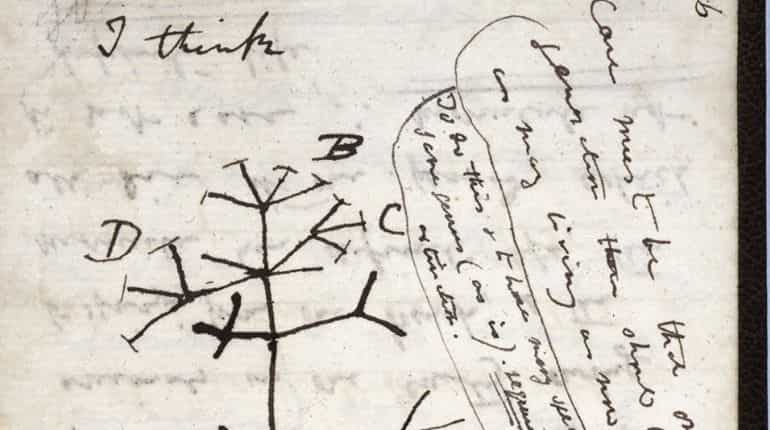 I think
B
C
D
Case must be that
generation then should
as many living as now
To do this & to have many
same genus (as is). requires
extinction.